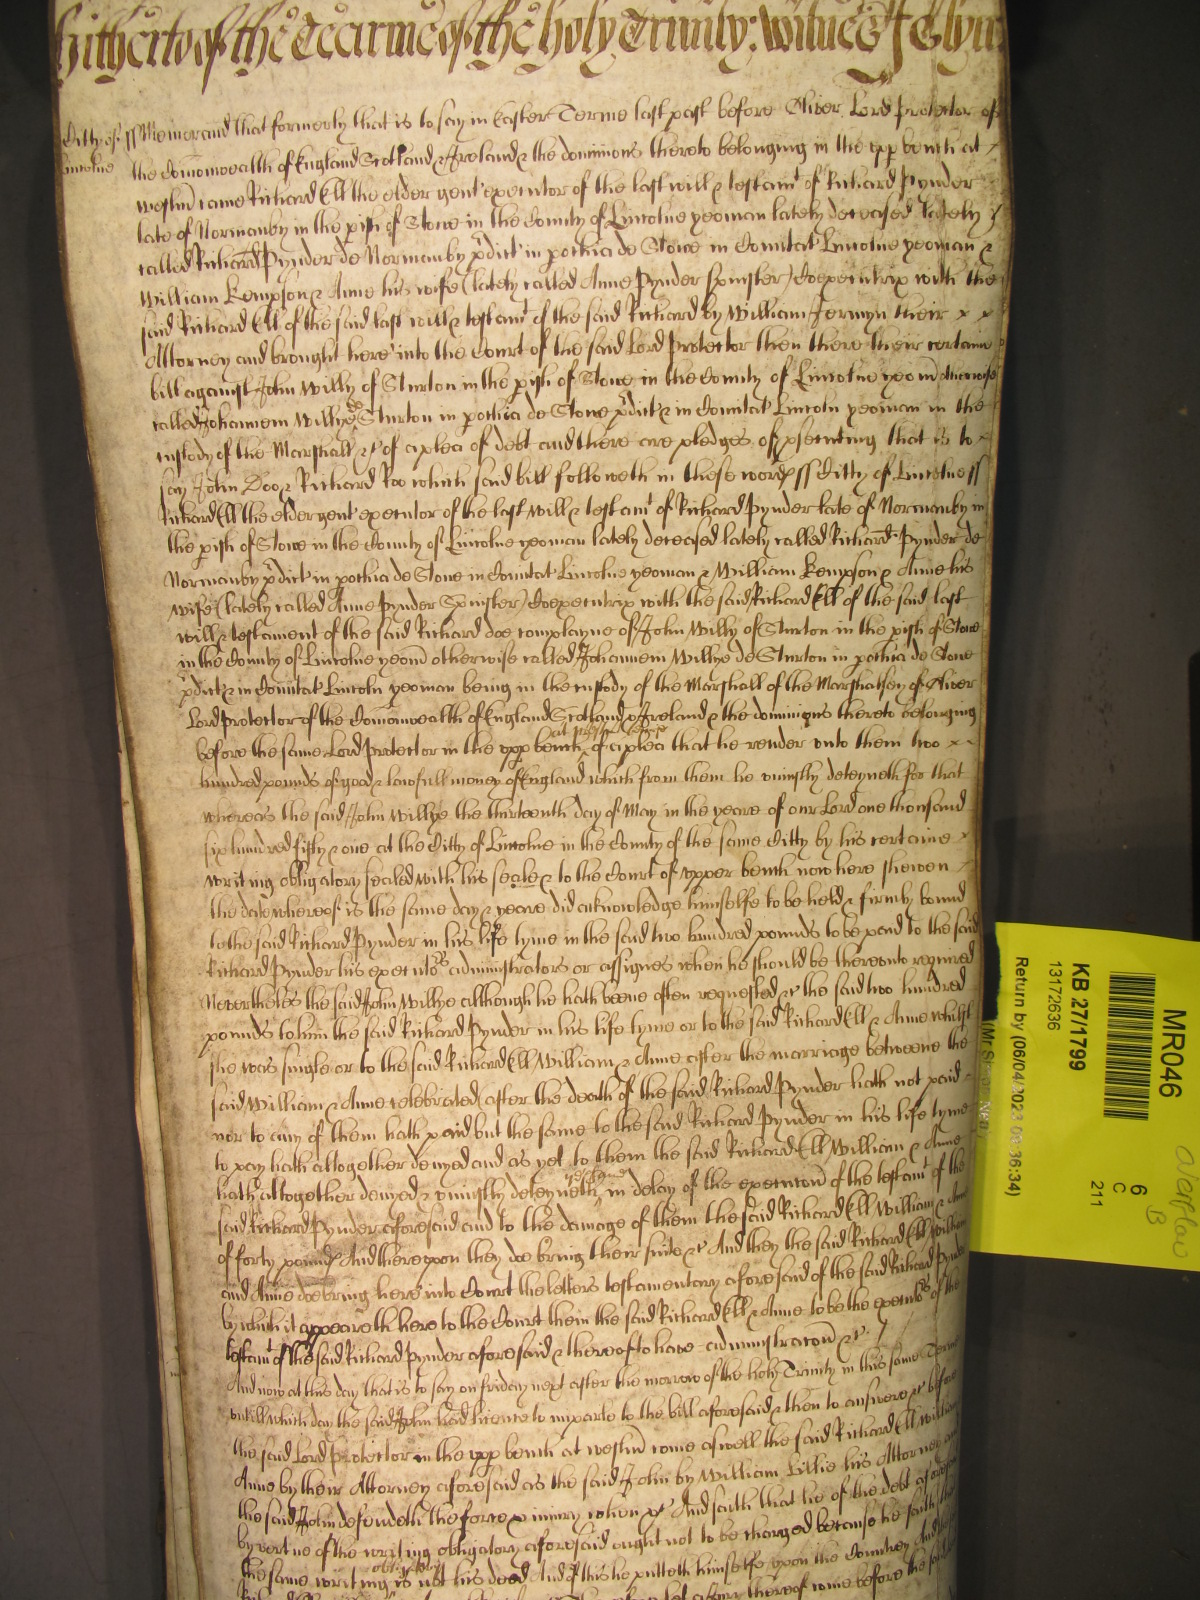 hitherto of the Tearme of the holy Trinity: Witnes J Glyn
Citty of ss Memorand that formerly that is to say in Easter Terme last past before Oliver Lord Protector of
Lincolne the Comonwealth of England Scotland & Ireland & the dominions thereto belonging in the upp bench at
westm came Richard Ell the elder gent executor of the last will & testamt of Richard Pynder
late of Normanby in the pish of Stowe in the County of Lincolne yeoman lately deceased lately
called Richard Pynder de Normanby pdict in pochia de Stowe in Comitat Lincolne yeoman &
William Kempson & Anne his wife (lately called Anne Pynder Spinster) Coexecutrix with the
said Richard Ell of the said last will & testamt of the said Richard by William Jermyn their x x
Attorney and brought here into the Court of the said Lord Protector then there their certaine
bill against John Willy of Sturton in the pish of Stowe in the County of Lincolne yeom otherwise
called Johannem Willye de Sturton in pochia de Stowe pdict & in Comitat Lincoln yeoman in the
custody of the Marshall &c of a plea of debt and there are pledges of psecuting that is to
say John Doo & Richard Roo which said bill followeth in these words ss Citty of Lincolne ss
Richard Ell the elder gent executor of the last Will & testamt of Richard Pynder late of Normanby in
the pish of Stowe in the County of Lincolne yeoman lately deceased lately called Richard Pynder de
Normanby pdict in pochia de Stowe in Comitat Lincolne yeoman & William Kempson & Anne his
wife (lately called Anne Pynder Spinster) Coexecutrix with the said Richard Ell of the said last
will & testament of the said Richard doe complayne of John Willy of Sturton in the pish of Stowe
in the County of Lincolne yeom otherwise called Johannem Willye de Sturton in pochia de Stowe
pdict & in Comitat Lincoln yeoman being in the custody of the Marshall of the Marshalsey of Oliver
Lord Protector of the Comonwealth of England Scotland & Ireland & the dominions thereto belonging
before the same Lord Protector in the upp bench of a plea that he render unto them two x x
hundred pounds of good & lawfull money of England which from them he uniustly deteyneth for that
whereas the said John Willye the thirteenth day of May in the yeare of our Lord one thousand
six hundred fifty & one at the Citty of Lincolne in the County of the same Citty by his certaine x
writing obligatory sealed with his seale & to the Court of upper bench now here shewen
the date whereof is the same day & yeare did acknowledge himselfe to be held & firmly bound
to the said Richard Pynder in his life tyme in the said two hundred pounds to be paid to the said
Richard Pynder his executors administrators or assignes when he should be thereunto required
Neverthelesse the said John Willye although he hath beene often requested &c the said two hundred
pounds to him the said Richard Pynder in his life tyme or to the said Richard Ell & Anne whilst
she was single or to the said Richard Ell William & Anne after the marriage betweene the
said William & Anne celebrated after the death of the said Richard Pynder hath not paid
nor to any of them hath paid but the same to the said Richard Pynder in his life tyme
to pay hath altogether denyed and as yet to them the said Richard Ell William & Anne
hath altogether denyed & uniustly deteyneth in delay of the execution of the testamt of the
said Richard Pynder aforesaid and to the damage of them the said Richard Ell William & Anne
of forty pounds And thereupon they doe bring their suite &c And they the said Richard Ell William
and Anne doe bring here into Court the letters testamentary aforesaid of the said Richard Pynder
by which it appeareth here to the Court them the said Richard Ell & Anne to be the executors of the
testamt of the said Richard Pynder aforesaid & thereof to have administracon &c
And now at this day that is to say on friday next after the morrow of the holy Trinity in this same Terme
untill which day the said John had licence to imparle to the bill aforesaid & then to answere &c before
the said Lord Protector in the upp bench at westm come aswell the said Richard Ell William
Anne by their Attorney aforesaid as the said John by William Lillie his Attorney and
the said John defendeth the force & iniury when &c And saith that he of the debt aforesaid
by vertue of the writing obligatory aforesaid ought not to be charged because he saith that
the same writing obligatory is not his deed And of this he putteth himselfe upon the Countrey And the
thereof come before the said
MR046
6
C
211
KB 27/1799
13172636
Return by (06/04/2023 08:36:34)
overflow
B